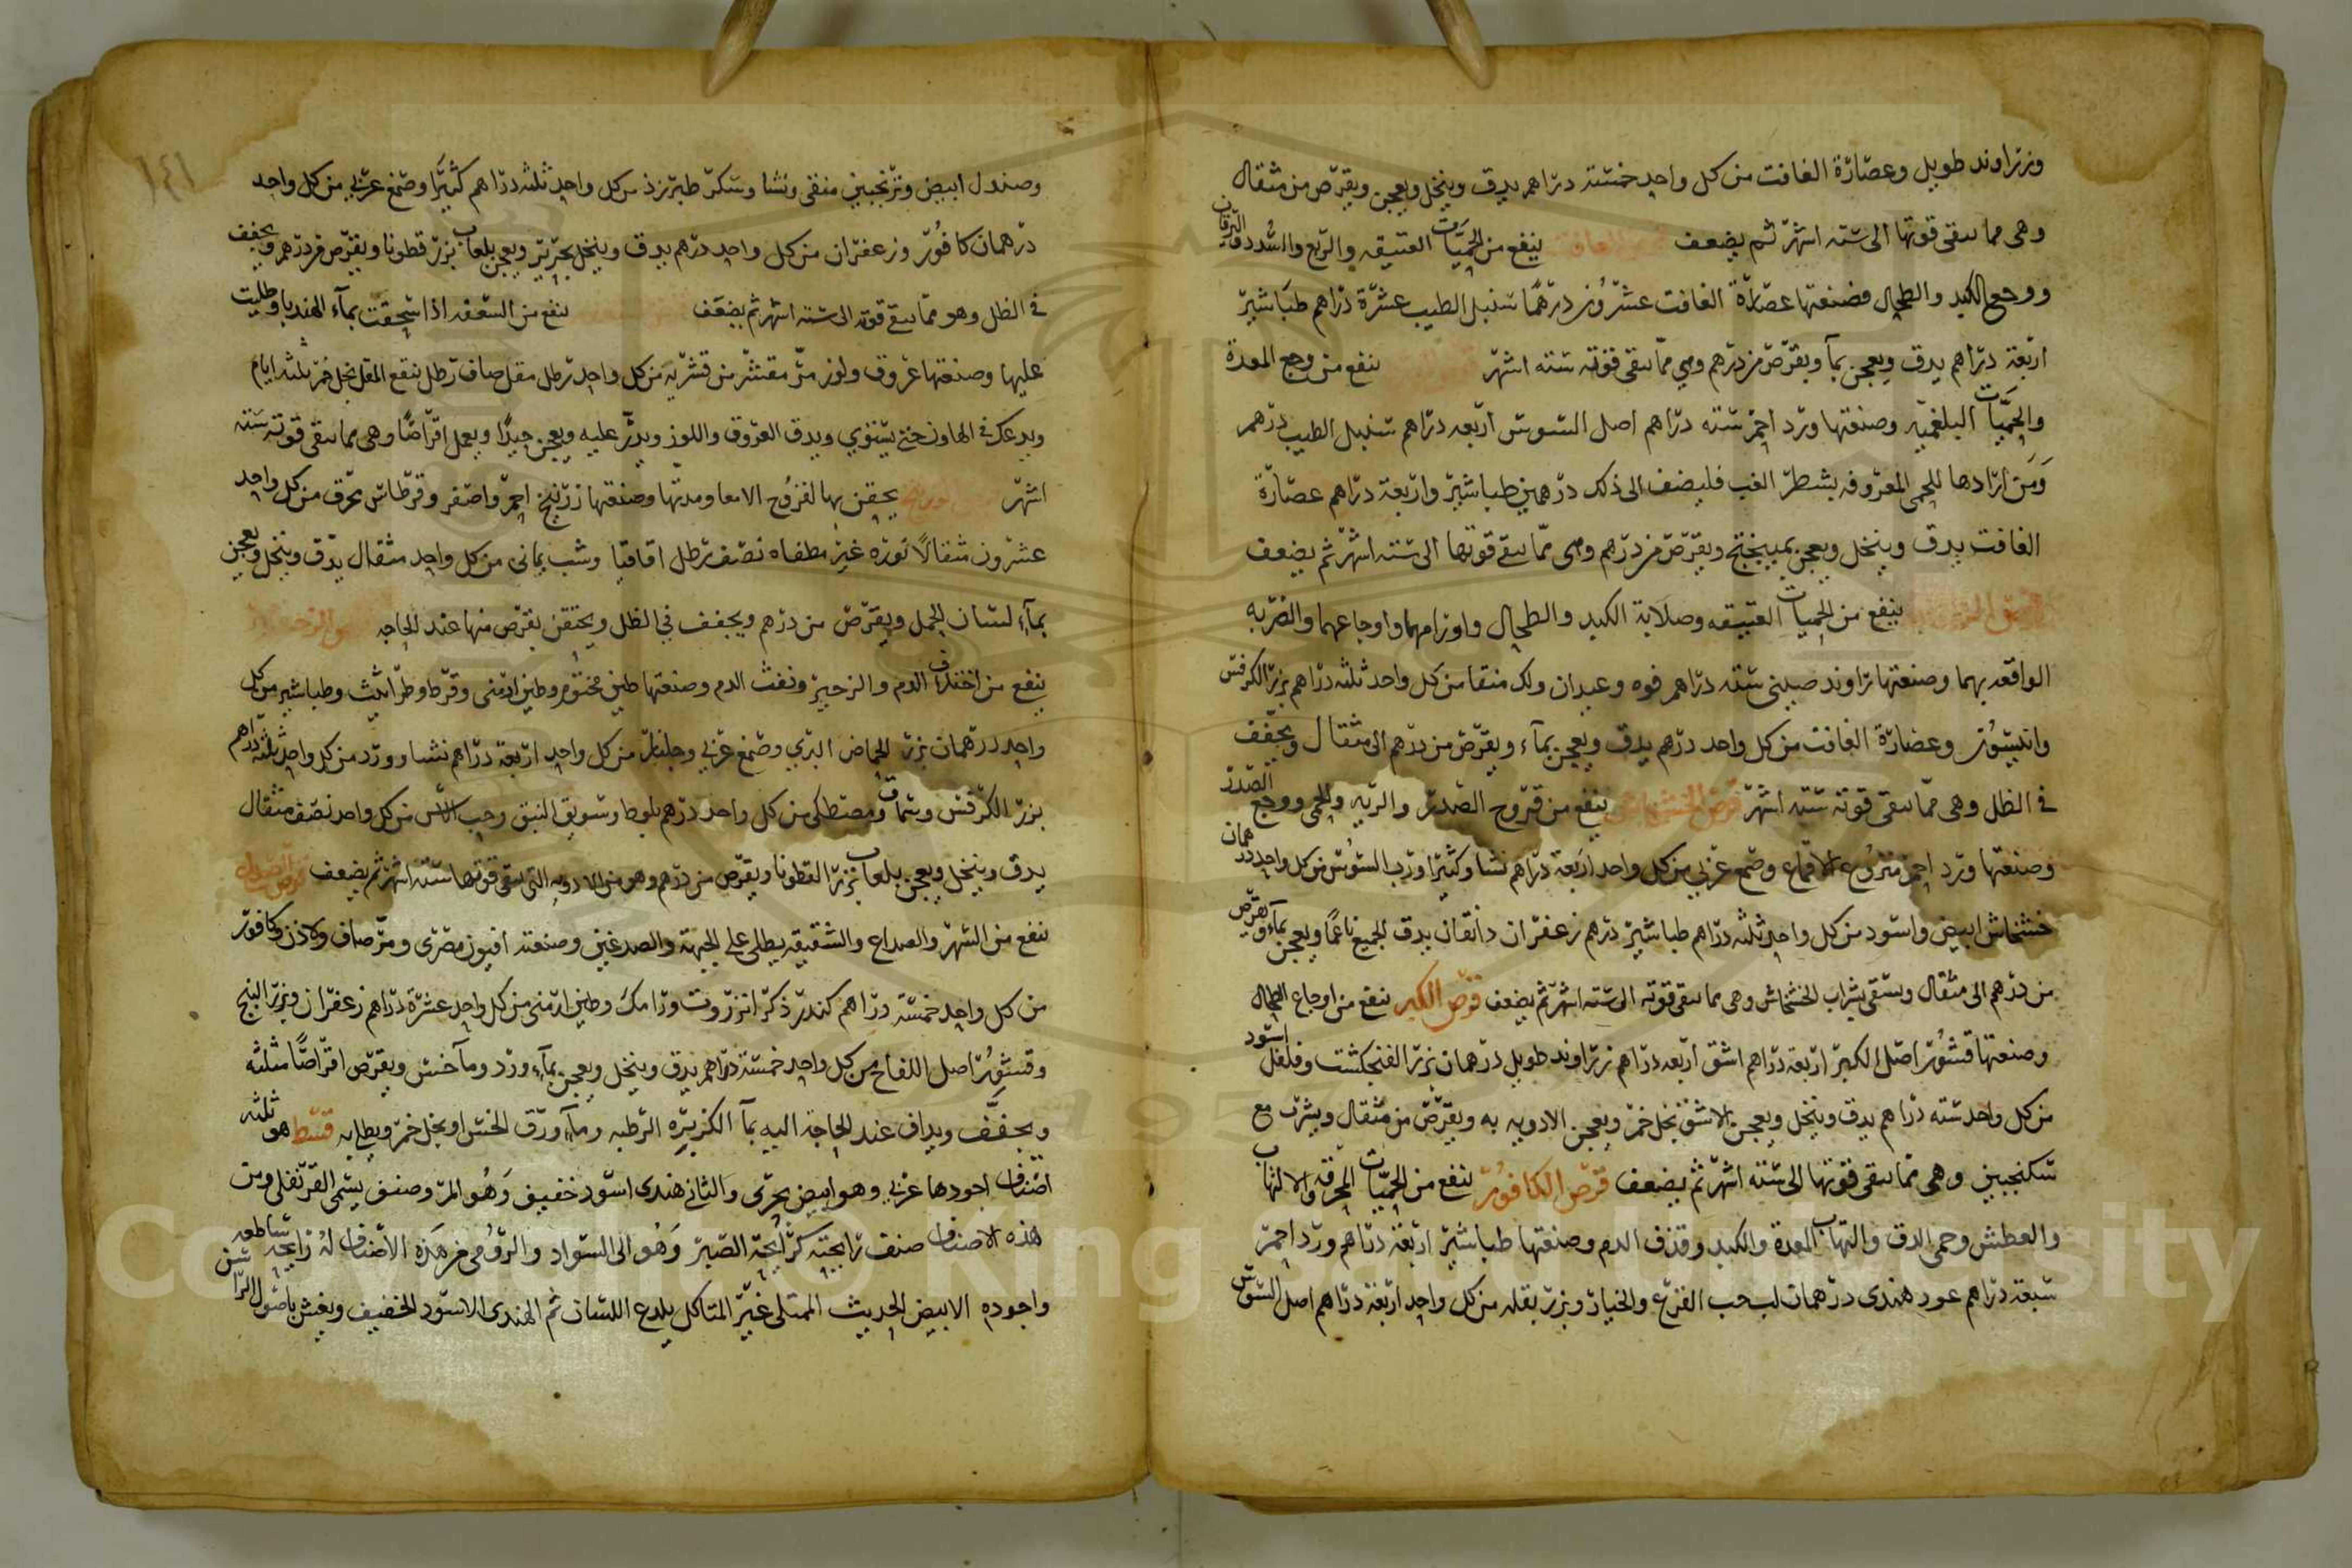 وزراوند طويل وعصارة الغافت من كل واحد خمسة دراهم يدق وينخل ويعجن ويقرص من مثقال
وهى مما تبقى قوتها الى ستة اشهر ثم يضعف الغافت ينفع من الحميات العتيقه والربع والسدد واليرقان
ووجع الكبد والطحال وصنعتها عصارة الغافت عشرون درهما سنبل الطيب عشرة دراهم طباشير
اربعة دراهم يدق ويعجن بما ويقرص من درهم وهي مما تبقى قوته ستة اشهر ينفع من وجع المعدة
والحميات البلغميه وصنعتها ورد احمر ستة دراهم اصل السوس اربعه دراهم سنبل الطيب درهم
ومن ارادها للحمى المعروفه بشطر الغب فليضف الى ذلك درهمين طباشير واربعة دراهم عصارة
الغافت يدق وينخل ويعجن بميبختج ويقرص من درهم وهى مما تبقى قوتها الى ستة اشهر ثم يضعف
ينفع من الحميات العتيقه وصلابة الكبد والطحال واورامهما واوجاعهما والضربه
الواقعه بهما وصنعتها راوند صينى ستة دراهم فوه وعيدان ولك منقا من كل واحد ثلثه دراهم بزر الكرفس
وانيسون وعصارة الغافت من كل واحد درهم يدق ويعجن بماء ويقرص من درهم الى مثقال ويجفف
في الظل وهى مما تبقى قوته ستة اشهر قرص الخشخاش ينفع من قروح الصدر والريه والحمى ووجع الصدر
وصنعتها ورد احمر منزوع الاقماع وصمغ عربي من كل واحد اربعة دراهم نشا وكثيرا ورب السوس من كل واحد درهمان
خشخاش ابيض واسود من كل واحد ثلثه دراهم طباشير درهم زعفران دانقان يدق الجميع ناعما ويعجن بماء ويقرص
من درهم الى مثقال ويسقى بشراب الخشخاش وهى مما تبقى قوته الى ستة اشهر ثم يضعف قرص الكبر ينفع من اوجاع الطحال
وصنعتها قشور اصل الكبر اربعة دراهم اشق اربعه دراهم زراوند طويل درهمان بزر الفنجكشت وفلفل اسود
من كل واحد ستة دراهم يدق وينخل ويعجن بالاشق بخل خمر ويعجن الادويه به ويقرص من مثقال ويشرب مع
سكنجبين وهى مما تبقى قوتها الى ستة اشهر ثم يضعف قرص الكافور ينفع من الحميات المحرقه والالتهاب
والعطش وحمى الدق والتهاب المعدة والكبد وقذف الدم وصنعتها طباشير اربعة دراهم ورد احمر
سبعة دراهم عود هندى درهمان لب حب القرع والخيار وبزر بقله من كل واحد اربعة دراهم اصل السوس
١٤١
وصندل ابيض وترنجبين منقى ونشا وسكر طبرزذ من كل واحد ثلثه دراهم كثيرا وصمغ عربي من كل واحد
درهمان كافور وزعفران من كل واحد درهم يدق وينخل بحرير ويعجن بلعاب بزر قطونا ويقرص من درهم ويجفف
في الظل وهو مما تبقى قوته الى ستة اشهر ثم يضعف ينفع من السعفه اذا سحقت بماء الهندبا وطليت
عليها وصنعتها عروق ولوز مر مقشر من قشريه من كل واحد رطل مقل صاف رطل ينقع المقل بخل خمر ثلثه ايام
ويدعك في الهاون حتى يستوي ويدق العروق واللوز ويذر عليه ويعجن جيدا ويعمل اقراصا وهى مما تبقى قوته ستة
اشهر يحقن بها لقروح الامعا ومدتها وصنعتها زرنيخ احمر واصفر وقرطاس محرق من كل واحد
عشرون مثقالا نوره غير مطفاه نصف رطل اقاقيا وشب يمانى من كل واحد مثقال يدق وينخل ويعجن
بماء لسان الحمل ويقرص من درهم ويجفف في الظل ويحتقن بقرص منها عند الحاجه
ينفع من اختلاف الدم والزحير ونفث الدم وصنعتها طين مختوم وطين ارمنى وقرط وطراثيث وطباشير من كل
واحد درهمان بزر الحماض البري وصمغ عربي وجلنار من كل واحد اربعة دراهم نشا وورد من كل واحد ثلثه دراهم
بزر الكرفس وسماق ومصطكى من كل واحد درهم بلوط وسويق النبق وحب الاس من كل واحد نصف مثقال
يدق وينخل ويعجن بلعاب بزر القطونا ويقرص من درهم وهو من الادويه التى تبقى قوتها ستة اشهر ثم يضعف
ينفع من السهر والصداع والشقيقه يطلى على الجبهة والصدغين وصنعته افيون مصرى ومر صاف ولاذن وكافور
من كل واحد خمسة دراهم كندر ذكر انزروت ورامك وطين ارمنى من كل واحد عشرة دراهم زعفران وبزر البنج
وقشور اصل اللفاح من كل واحد خمسة دراهم يدق وينخل ويعجن بماء ورد وما خس ويقرص اقراصا مثلثه
ويجفف ويداف عند الحاجة اليه بما الكزبره الرطبه وماء ورق الخس او بخل خمر ويطلى به قسط هو ثلثه
اصناف اجودها عربي وهو ابيض بحرى والثاني هندى اسود خفيف وهو المر وصنف يسمى القرنفلى ومن
هذه الاصناف صنف رايحته كرايحة الصبر وهو الى السواد والرومى من هذه الاصناف له رايحة ساطعه
واجوده الابيض الحديث الممتلى غير المتاكل يلدع اللسان ثم الهندى الاسود الخفيف ويغش باصول الراسن